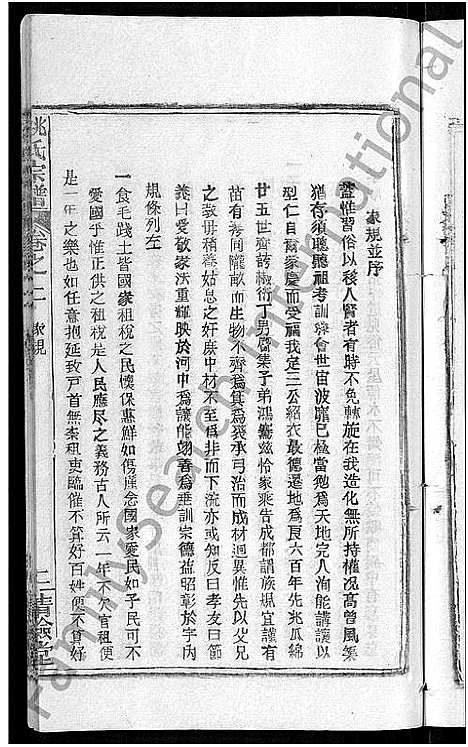 家規並序
蓋惟習俗以移人賢者有時不免轉旋在我造化無所持權况高曾風
猶存須聽聽祖考訓會世宙波靡已極當勉為天地完人洵能講讓以
型仁自爾家慶而受福我足三公紹衣最德遷地為良六百年先兆瓜綿
廿五世齊誇椒衍丁男集子弟鴻恰家乘告成都講族規宜謹有
苗有秀同隴畝而生物不齊為箕為裘承弓冶而成材迥異惟先以父兄
之教毋稍吞姑息之奸庶中材不至為非而下流亦或知反曰孝友曰節
義曰愛敬家法重輝映於河中為讓能翊善為垂訓宗德葩昭章於宇內
規條列左
一食毛踐土皆國家租稅之民懷保惠鮮如傷廑念國家愛民如子民可不
愛國乎惟正供之租稅是人民應尽之義務古人所云一年不欠官租便
是一年之樂也如任意抱延致戶首無奈租吏臨催不算好百姓便不算好
姚氏宗譜
卷之一
家規
二
FamilySearch International